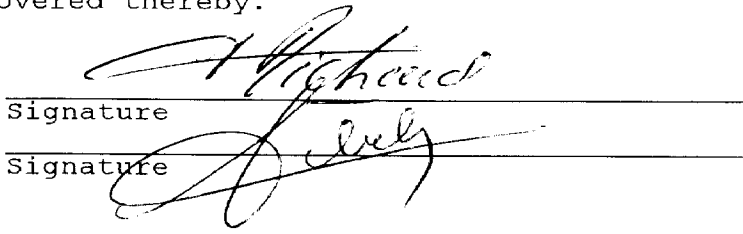 overed thereby.
Richard
Signature
Signature